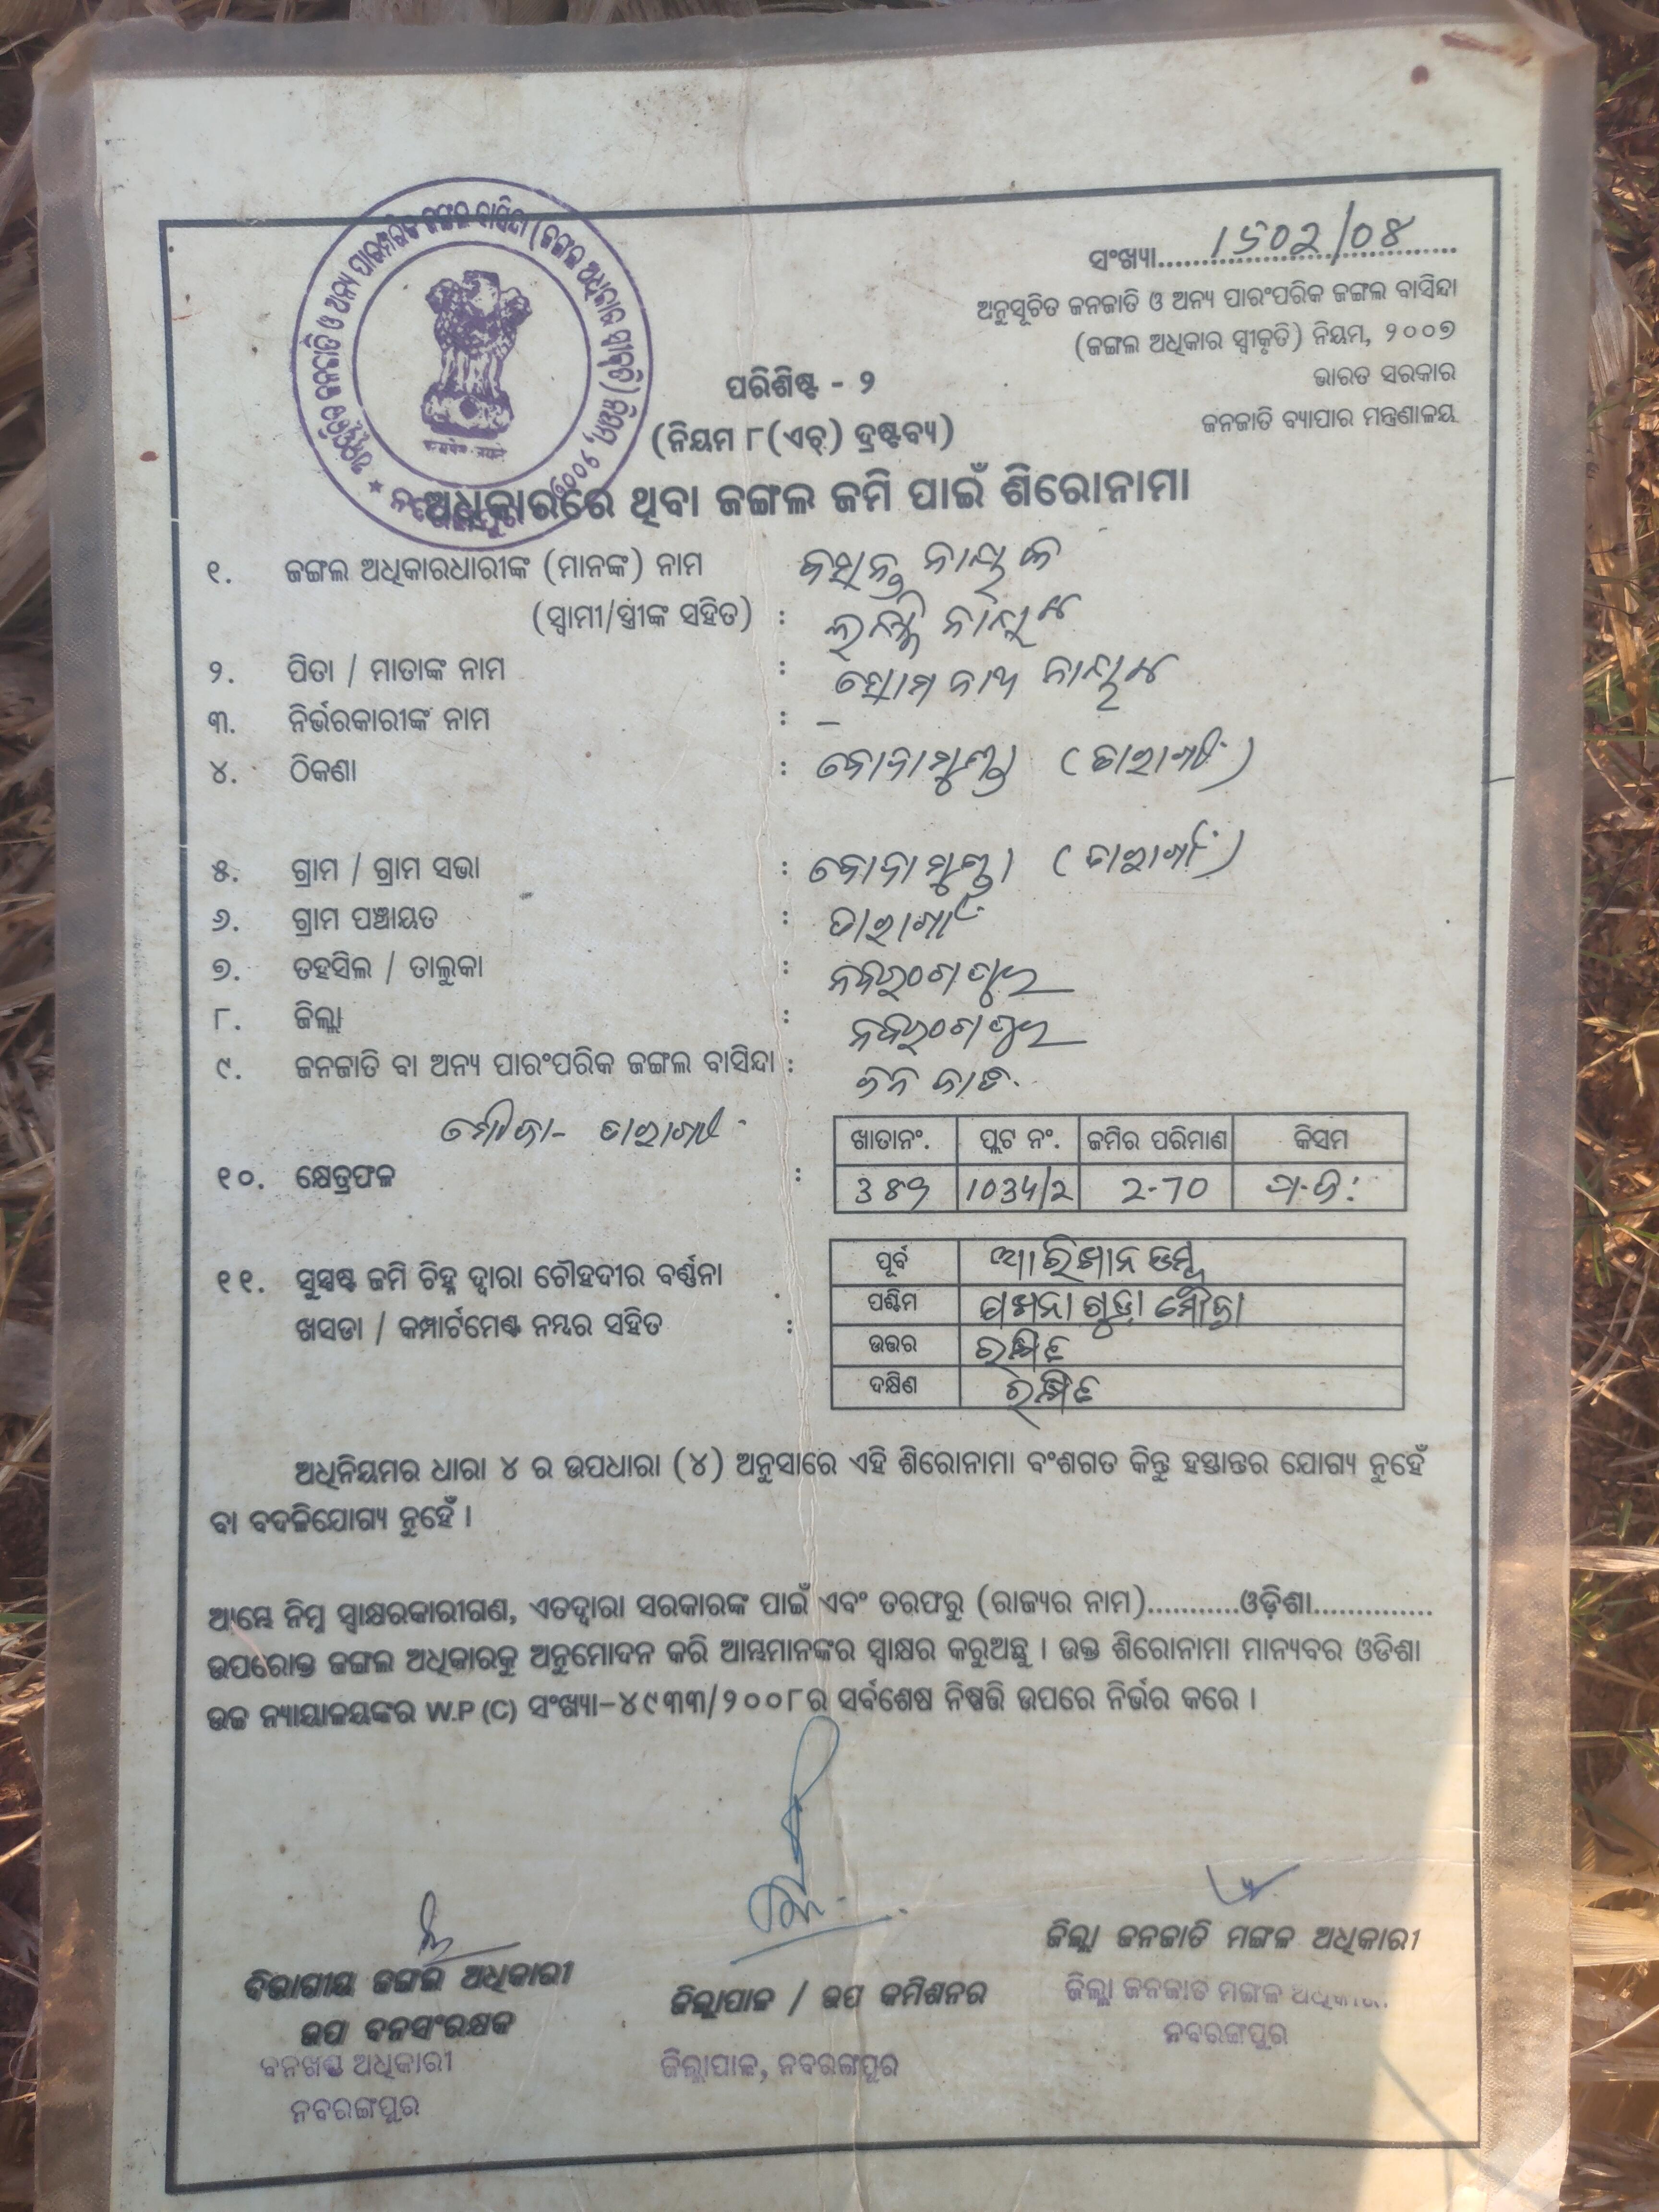 ସଂଖ୍ୟା..........୧୬୦୨/୦୪..........
ଅନୁସୂଚିତ ଜନଜାତି ଓ ଅନ୍ୟ ପାରଂପରିକ ଜଙ୍ଗଲ ବାସିନ୍ଦା
(ଜଙ୍ଗଲ ଅଧିକାର ସ୍ୱୀକୃତି) ନିୟମ, ୨୦୦୭
ଭାରତ ସରକାର
ଜନଜାତି ବ୍ୟାପାର ମନ୍ତ୍ରଣାଳୟ
ପରିଶିଷ୍ଟ - ୨
(ନିୟମ ୮(ଏଚ୍) ଦ୍ରଷ୍ଟବ୍ୟ)
ଅଧିକାରରେ ଥିବା ଜଙ୍ଗଲ ଜମି ପାଇଁ ଶିରୋନାମା
୧. ଜଙ୍ଗଲ ଅଧିକାରଧାରୀଙ୍କ (ମାନଙ୍କ) ନାମ ନାୟକ
(ସ୍ୱାମୀ/ସ୍ତ୍ରୀଙ୍କ ସହିତ) : ନାୟକ
୨. ପିତା / ମାତାଙ୍କ ନାମ : ସୋମ ନାଥ ନାୟକ
୩. ନିର୍ଭରକାରୀଙ୍କ ନାମ : –
୪. ଠିକଣା :
୫. ଗ୍ରାମ / ଗ୍ରାମ ସଭା :
୬. ଗ୍ରାମ ପଞ୍ଚାୟତ :
୭. ତହସିଲ / ତାଲୁକା : ନବରଂଗପୁର
୮. ଜିଲ୍ଲା : ନବରଂଗପୁର
୯. ଜନଜାତି ବା ଅନ୍ୟ ପାରଂପରିକ ଜଙ୍ଗଲ ବାସିନ୍ଦା : ଜନ ଜାତି
ମୌଜା-
୧୦. କ୍ଷେତ୍ରଫଳ :
ଖାତାନଂ. ପ୍ଲଟ ନଂ. ଜମିର ପରିମାଣ କିସମ
1034/2 2.70
୧୧. ସୁସ୍ପଷ୍ଟ ଜମି ଚିହ୍ନ ଦ୍ୱାରା ଚୌହଦୀର ବର୍ଣ୍ଣନା
ଖସଡା / କମ୍ପାର୍ଟମେଣ୍ଟ ନମ୍ବର ସହିତ :
ପୂର୍ବ
ପଶ୍ଚିମ ମୌଜା
ଉତ୍ତର
ଦକ୍ଷିଣ
ଅଧିନିୟମର ଧାରା ୪ ର ଉପଧାରା (୪) ଅନୁସାରେ ଏହି ଶିରୋନାମା ବଂଶଗତ କିନ୍ତୁ ହସ୍ତାନ୍ତର ଯୋଗ୍ୟ ନୁହେଁ
ବା ବଦଳିଯୋଗ୍ୟ ନୁହେଁ ।
ଆମ୍ଭେ ନିମ୍ନ ସ୍ୱାକ୍ଷରକାରୀଗଣ, ଏତଦ୍ୱାରା ସରକାରଙ୍କ ପାଇଁ ଏବଂ ତରଫରୁ (ରାଜ୍ୟର ନାମ)...........ଓଡ଼ିଶା...............
ଉପରୋକ୍ତ ଜଙ୍ଗଲ ଅଧିକାରକୁ ଅନୁମୋଦନ କରି ଆମ୍ଭମାନଙ୍କର ସ୍ୱାକ୍ଷର କରୁଅଛୁ । ଉକ୍ତ ଶିରୋନାମା ମାନ୍ୟବର ଓଡିଶା
ଉଚ୍ଚ ନ୍ୟାୟାଳୟଙ୍କର W.P (C) ସଂଖ୍ୟା-୪୯୩୩/୨୦୦୮ର ସର୍ବଶେଷ ନିଷ୍ପତ୍ତି ଉପରେ ନିର୍ଭର କରେ ।
ବିଭାଗୀୟ ଜଙ୍ଗଲ ଅଧିକାରୀ
ଉପ ବନସଂରକ୍ଷକ
ବନଖଣ୍ଡ ଅଧିକାରୀ
ନବରଙ୍ଗପୁର
ଜିଲ୍ଲାପାଳ / ଉପ କମିଶନର
ଜିଲ୍ଲାପାଳ, ନବରଙ୍ଗପୁର
ଜିଲ୍ଲା ଜନଜାତି ମଙ୍ଗଳ ଅଧିକାରୀ
ଜିଲ୍ଲା ଜନଜାତି ମଙ୍ଗଳ ଅଧିକାରୀ
ନବରଙ୍ଗପୁର